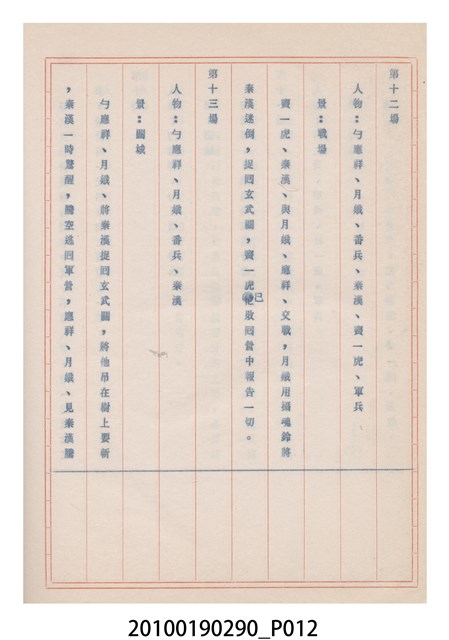 第十二場
人物：勺應祥、月娥、番兵、秦漢、竇一虎、軍兵
景：戰場
竇一虎、秦漢、與月娥、應祥、交戰，月娥用攝魂鈴將
秦漢迷倒，捉回玄武關，竇一虎已敗回營中報告一切。
第十三場
人物：勺應祥、月娥、番兵、秦漢
景：關城
勺應祥、月娥、將秦漢捉回玄武關，將他吊在樹上要斬
，秦漢一時驚醒，騰空逃回軍營，應祥、月娥、見秦漢騰
20100190290_P012